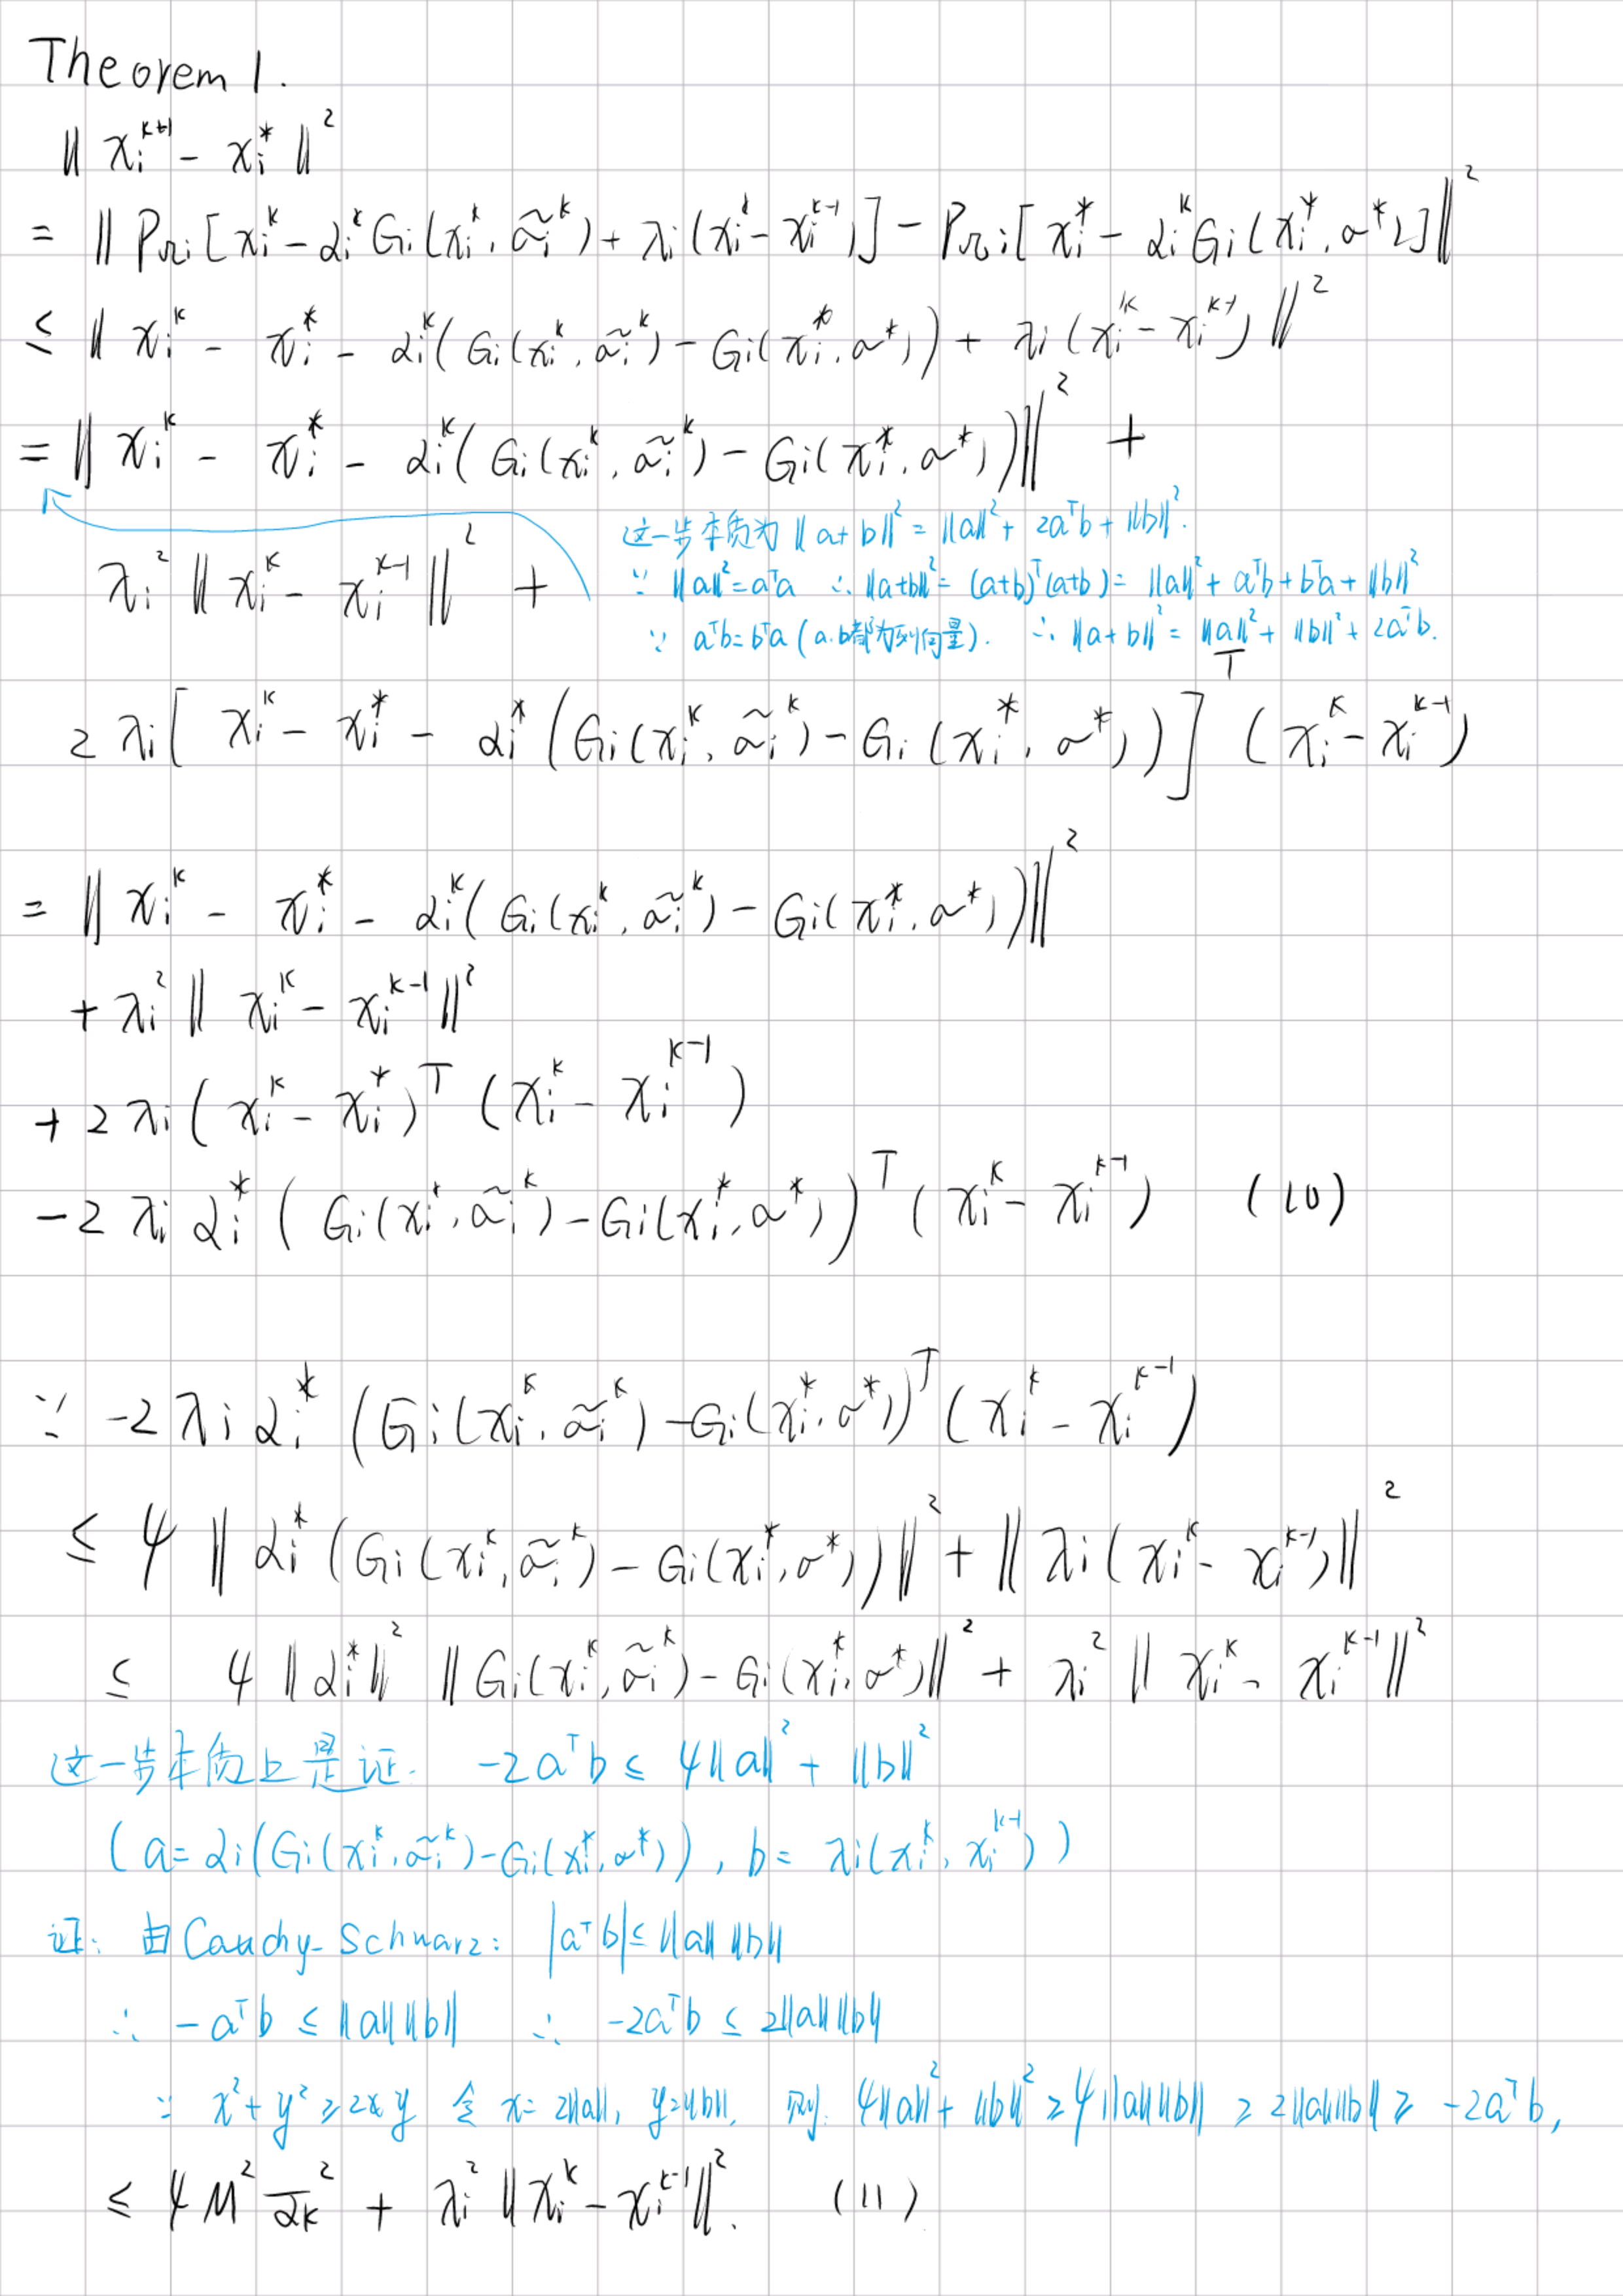 Theorem 1.
‖ x_i^{k+1} - x_i^* ‖^2
= ‖ P_{Ωi}[x_i^k - α_i^k G_i(x_i^k, σ̃_i^k) + λ_i(x_i^k - x_i^{k-1})] - P_{Ωi}[x_i^* - α_i^k G_i(x_i^*, σ^*)] ‖^2
≤ ‖ x_i^k - x_i^* - α_i^k(G_i(x_i^k, σ̃_i^k) - G_i(x_i^*, σ^*)) + λ_i(x_i^k - x_i^{k-1}) ‖^2
= ‖ x_i^k - x_i^* - α_i^k(G_i(x_i^k, σ̃_i^k) - G_i(x_i^*, σ^*)) ‖^2 +
这一步本质为 ‖a+b‖^2 = ‖a‖^2 + 2a^T b + ‖b‖^2.
λ_i^2 ‖ x_i^k - x_i^{k-1} ‖^2 +
∵ ‖a‖^2 = a^T a ∴ ‖a+b‖^2 = (a+b)^T(a+b) = ‖a‖^2 + a^T b + b^T a + ‖b‖^2
∵ a^T b = b^T a (a.b都为列向量). ∴ ‖a+b‖^2 = ‖a‖^2 + ‖b‖^2 + 2a^T b.
2 λ_i [ x_i^k - x_i^* - α_i^*(G_i(x_i^k, σ̃_i^k) - G_i(x_i^*, σ^*)) ]^T (x_i^k - x_i^{k-1})
= ‖ x_i^k - x_i^* - α_i^k(G_i(x_i^k, σ̃_i^k) - G_i(x_i^*, σ^*)) ‖^2
+ λ_i^2 ‖ x_i^k - x_i^{k-1} ‖^2
+ 2 λ_i (x_i^k - x_i^*)^T (x_i^k - x_i^{k-1})
- 2 λ_i α_i^* (G_i(x_i^k, σ̃_i^k) - G_i(x_i^*, σ^*))^T (x_i^k - x_i^{k-1}) (10)
∵ -2 λ_i α_i^* (G_i(x_i^k, σ̃_i^k) - G_i(x_i^*, σ^*))^T (x_i^k - x_i^{k-1})
≤ 4 ‖ α_i^* (G_i(x_i^k, σ̃_i^k) - G_i(x_i^*, σ^*)) ‖^2 + ‖ λ_i(x_i^k - x_i^{k-1}) ‖^2
≤ 4 ‖α_i^*‖^2 ‖ G_i(x_i^k, σ̃_i^k) - G_i(x_i^*, σ^*) ‖^2 + λ_i^2 ‖ x_i^k - x_i^{k-1} ‖^2
这一步本质上是证. -2a^T b ≤ 4‖a‖^2 + ‖b‖^2
(a = α_i(G_i(x_i^k, σ̃_i^k) - G_i(x_i^*, σ^*)), b = λ_i(x_i^k, x_i^{k-1}))
证: 由Cauchy-Schwarz: |a^T b| ≤ ‖a‖ ‖b‖
∴ -a^T b ≤ ‖a‖‖b‖ ∴ -2a^T b ≤ 2‖a‖‖b‖
∵ x^2 + y^2 ≥ 2xy 令 x = 2‖a‖, y = ‖b‖, 则: 4‖a‖^2 + ‖b‖^2 ≥ 4‖a‖‖b‖ ≥ 2‖a‖‖b‖ ≥ -2a^T b,
≤ 4 M^2 \overline{α}_k^2 + λ_i^2 ‖ x_i^k - x_i^{k-1} ‖^2. (11)